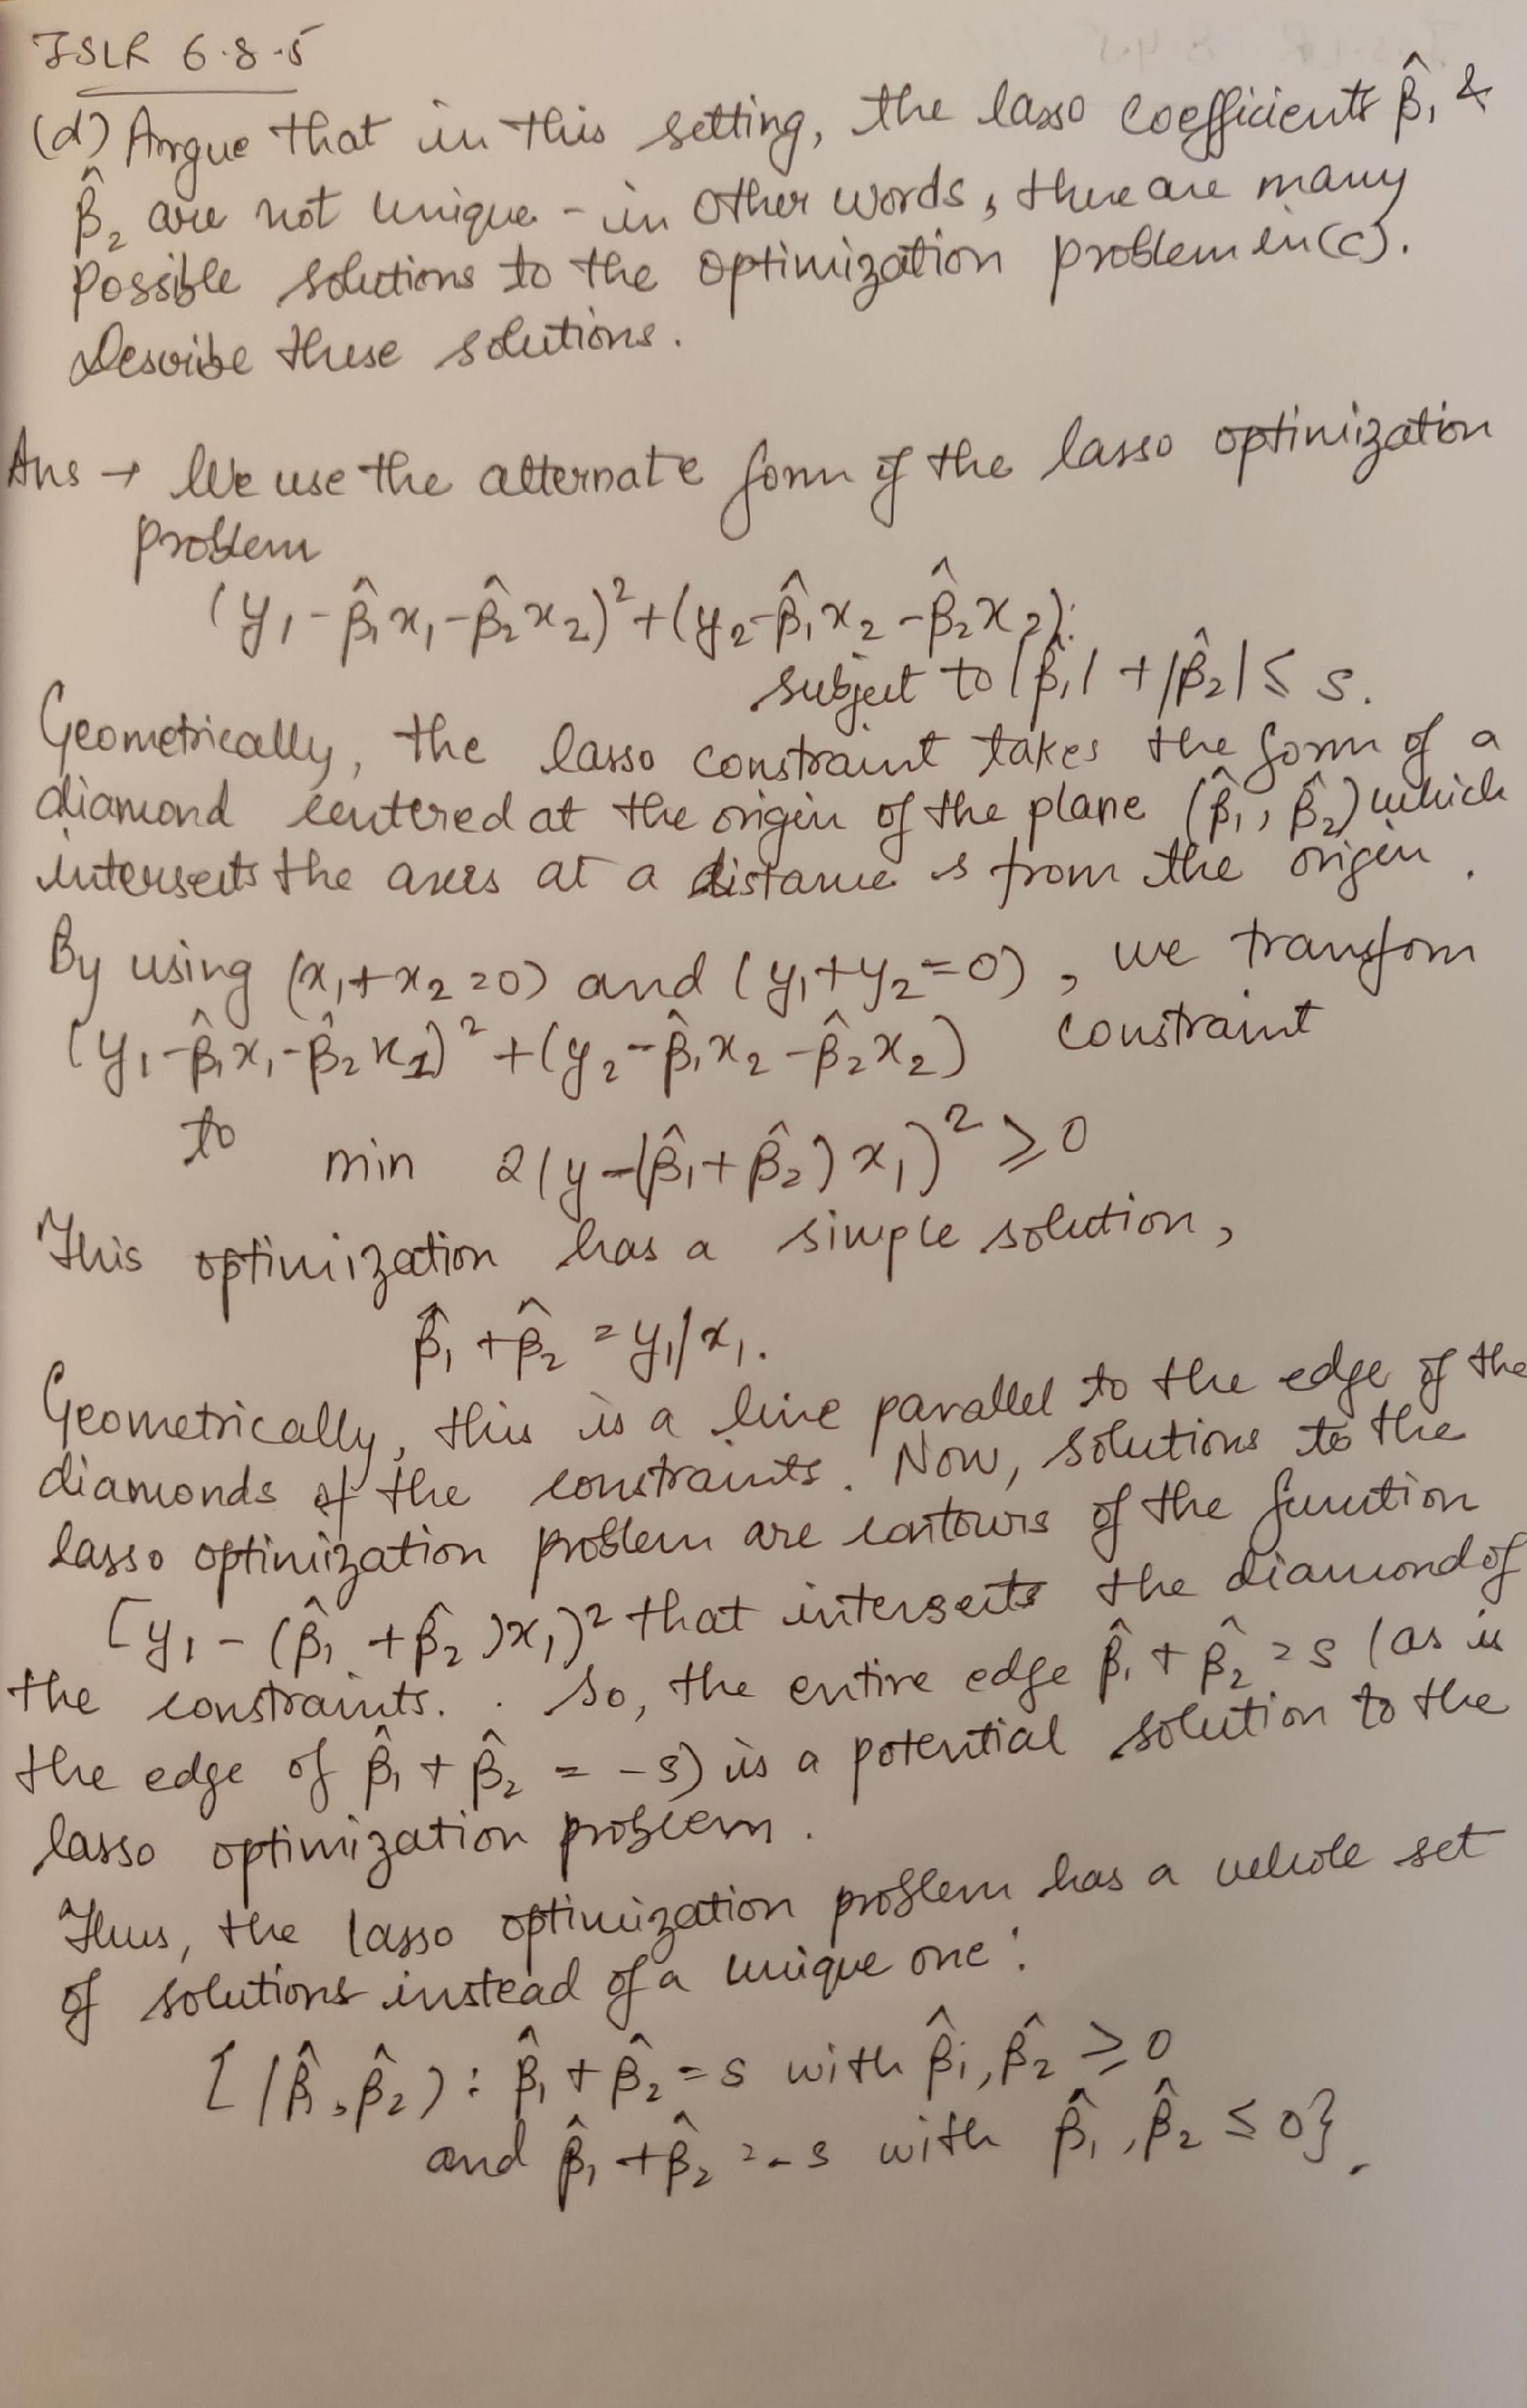 ISLR 6.8.5
(d) Argue that in this setting, the lasso coefficients β̂₁ &
β̂₂ are not unique - in other words, there are many
possible solutions to the optimization problem in (c).
Describe these solutions.
Ans → We use the alternate form of the lasso optimization
problem
(y₁ - β̂₁x₁ - β̂₂x₂)² + (y₂ - β̂₁x₂ - β̂₂x₂):
subject to |β̂₁| + |β̂₂| ≤ s.
Geometrically, the lasso constraint takes the form of a
diamond centered at the origin of the plane (β̂₁, β̂₂) which
intersects the axes at a distance s from the origin.
By using (x₁+x₂=0) and (y₁+y₂=0), we transform
(y₁ - β̂₁x₁ - β̂₂x₁)² + (y₂ - β̂₁x₂ - β̂₂x₂) constraint
to min 2(y - (β̂₁+β̂₂)x₁)² ≥ 0
This optimization has a simple solution,
β̂₁ + β̂₂ = y₁/x₁.
Geometrically, this is a line parallel to the edge of the
diamonds of the constraints. Now, solutions to the
lasso optimization problem are contours of the function
[y₁ - (β̂₁ + β̂₂)x₁)² that intersects the diamond of
the constraints. . So, the entire edge β̂₁ + β̂₂ = s (as is
the edge of β̂₁ + β̂₂ = -s) is a potential solution to the
lasso optimization problem.
Thus, the lasso optimization problem has a whole set
of solutions instead of a unique one:
[(β̂, β̂₂) : β̂₁ + β̂₂ = s with β̂₁, β̂₂ ≥ 0
and β̂₁ + β̂₂ = -s with β̂₁, β̂₂ ≤ 0}.